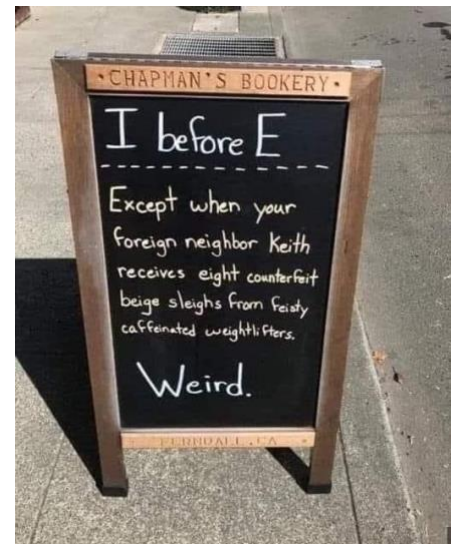 CHAPMAN'S BOOKERY
I before E
Except when your
foreign neighbor Keith
receives eight counterfeit
beige sleighs from feisty
caffeinated weightlifters.
Weird.
FERNDALE, CA